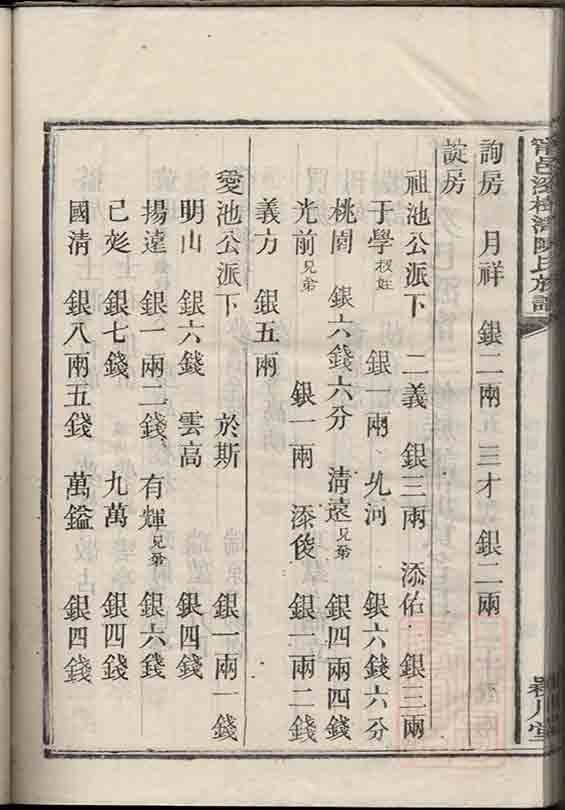 甯邑深梅灣陳氏族譜
潁川堂
詢房 月祥 銀二兩 三才 銀二兩
諚房
祖池公派下 二義 銀三兩 添佑 銀三兩
于學 叔姪 銀一兩 允河 銀六錢六分
桃園 銀六錢六分 清遠 兄弟 銀四兩四錢
光前 兄弟 銀一兩 添俊 銀一兩二錢
義方 銀五兩
愛池公派下 於斯 銀一兩一錢
明山 銀六錢 雲高 銀四錢
揚遠 銀一兩二錢 有輝 兄弟 銀六錢
己彪 銀七錢 九萬 銀四錢
國清 銀八兩五錢 萬鎰 銀四錢